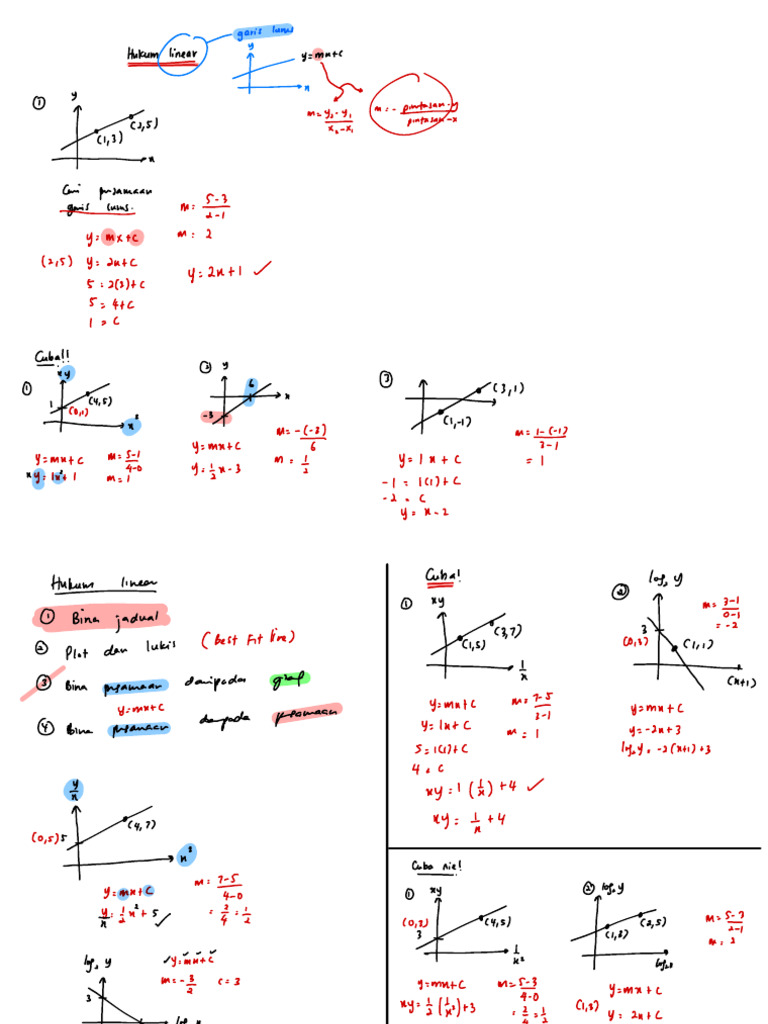 garis lurus
Hukum linear
y
x
y=mx+c
m = y₂-y₁ / x₂-x₁
m = - pintasan-y / pintasan-x
①
y
(2,5)
(1,3)
x
Cari persamaan
garis lurus.
m = 5-3 / 2-1
y = mx+c
m = 2
(2,5) y = 2x+c
y = 2x+1 ✓
5 = 2(2)+c
5 = 4+c
1 = c
Cuba!!
①
xy
1
(0,1)
(4,5)
x²
y = mx+c
m = 5-1 / 4-0
xy = 1x²+1
m = 1
②
y
6
x
-3
y = mx+c
m = -(-3) / 6
y = 1/2 x - 3
m = 1/2
③
(3,1)
(1,-1)
m = 1-(-1) / 3-1
= 1
y = 1x + c
-1 = 1(1)+c
-2 = c
y = x-2
Hukum linear
① Bina jadual
② Plot dan lukis (Best Fit line)
③ Bina persamaan daripada graf
y=mx+c
④ Bina persamaan daripada persamaan
y/x
(0,5) 5
(4,7)
y = mx+c
m = 7-5 / 4-0
y/x = 1/2 x² + 5 ✓
= 2/4 = 1/2
y = mx+c
m = -3/2
c = 3
3
Cuba!
①
xy
(3,7)
(1,5)
1/x
y = mx+c
m = 7-5 / 3-1
y = 1x+c
m = 1
5 = 1(1)+c
4 = c
xy = 1(1/x)+4 ✓
xy = 1/x + 4
②
3
(0,3)
(1,1)
(x+1)
m = 3-1 / 0-1
= -2
y = mx+c
y = -2x+3
Cuba nie!
①
xy
(0,3)
3
(4,5)
1/x²
y = mx+c
m = 5-3 / 4-0
xy = 1/2 (1/x²)+3
= 2/4 = 1/2
②
(2,5)
(1,3)
m = 5-3 / 2-1
m = 2
y = mx+c
(1,3) y = 2x+c